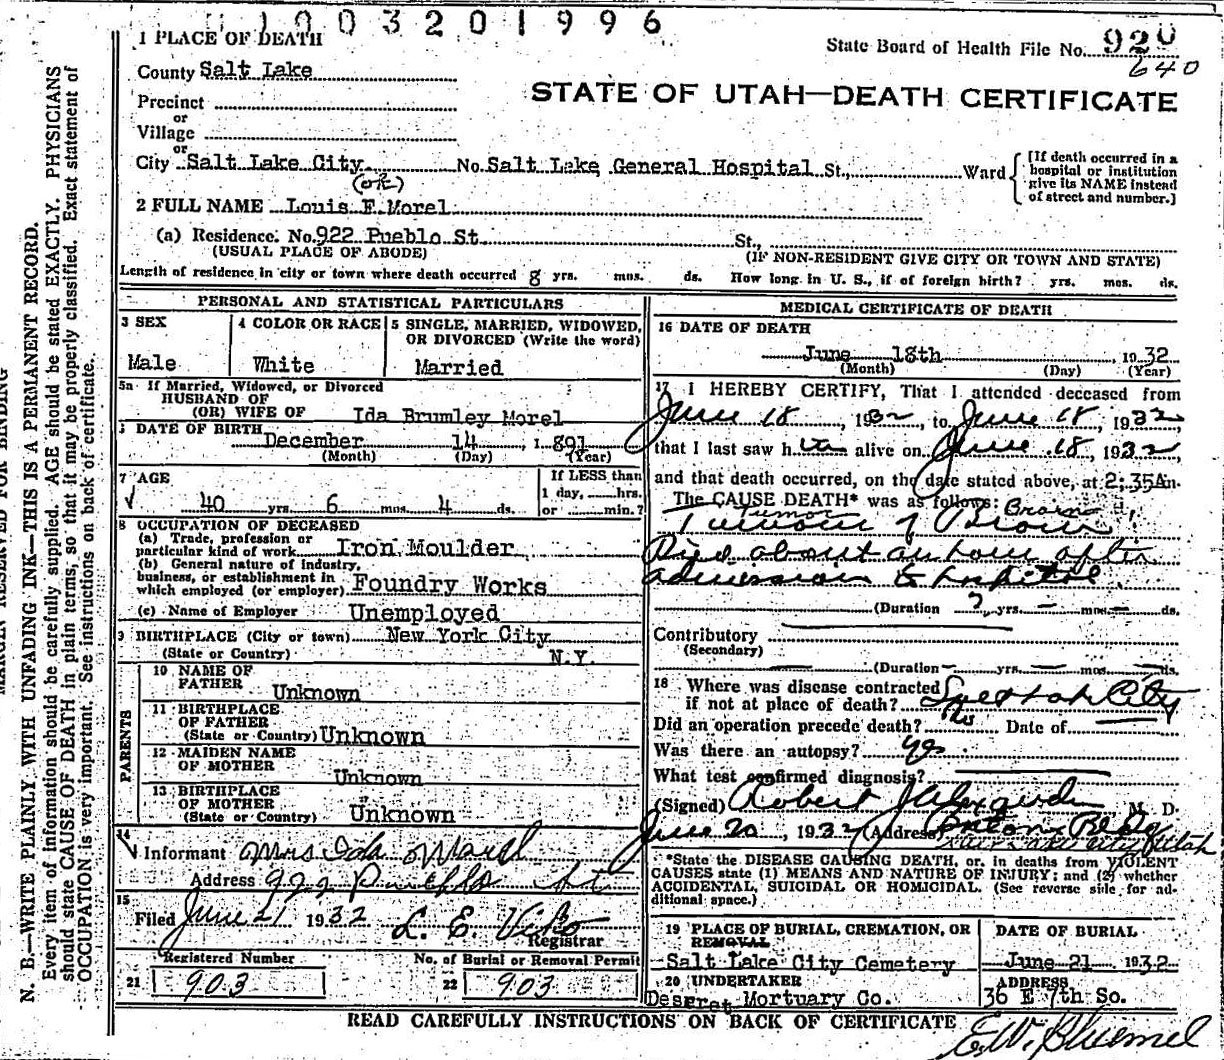 1003201996
1 PLACE OF DEATH
State Board of Health File No. 920
640
County Salt Lake
STATE OF UTAH—DEATH CERTIFICATE
Precinct
or
Village
or
City Salt Lake City No. Salt Lake General Hospital St., Ward
[If death occurred in a hospital or institution give its NAME instead of street and number.]
(or)
2 FULL NAME Louis F. Morel
(a) Residence. No. 922 Pueblo St. St.,
(USUAL PLACE OF ABODE) (IF NON-RESIDENT GIVE CITY OR TOWN AND STATE)
Length of residence in city or town where death occurred 8 yrs. mos. ds. How long in U. S., if of foreign birth? yrs. mos. ds.
PERSONAL AND STATISTICAL PARTICULARS
3 SEX
Male
4 COLOR OR RACE
White
5 SINGLE, MARRIED, WIDOWED,
OR DIVORCED (Write the word)
Married
5a If Married, Widowed, or Divorced
HUSBAND OF
(OR) WIFE OF Ida Brumley Morel
DATE OF BIRTH
December 14, 1891
(Month) (Day) (Year)
7 AGE
40 yrs. 6 mos. 4 ds.
If LESS than
1 day, hrs.
or min.?
8 OCCUPATION OF DECEASED
(a) Trade, profession or
particular kind of work Iron Moulder
(b) General nature of industry,
business, or establishment in
which employed (or employer) Foundry Works
(c) Name of Employer Unemployed
9 BIRTHPLACE (City or town) New York City
(State or Country) N.Y.
PARENTS
10 NAME OF
FATHER Unknown
11 BIRTHPLACE
OF FATHER
(State or Country) Unknown
12 MAIDEN NAME
OF MOTHER
Unknown
13 BIRTHPLACE
OF MOTHER
(State or Country) Unknown
14
Informant Mrs Ida Morel
Address 922 Pueblo St
15
Filed June 21 1932 L. E. Viko
Registrar
Registered Number
21 903
No. of Burial or Removal Permit
22 903
MEDICAL CERTIFICATE OF DEATH
16 DATE OF DEATH
June 18th, 1932
(Month) (Day) (Year)
17 I HEREBY CERTIFY, That I attended deceased from
June 18, 1932 to June 18, 1932
that I last saw h alive on June 18, 1932,
and that death occurred, on the date stated above, at 2:35A m.
The CAUSE DEATH* was as follows:
Tumor Brain
Tumor of Brain
Died about an hour after
admission to hospital
(Duration 2 yrs. — mos. — ds.
Contributory
(Secondary)
(Duration — yrs. — mos. — ds.
18 Where was disease contracted
if not at place of death? Salt Lake City
Did an operation precede death? No Date of
Was there an autopsy? yes
What test confirmed diagnosis?
(Signed) Robert J Alexander M. D.
June 20, 1932 (Address) Bldg
Utah
*State the DISEASE CAUSING DEATH, or, in deaths from VIOLENT
CAUSES state (1) MEANS AND NATURE OF INJURY; and (2) whether
ACCIDENTAL, SUICIDAL OR HOMICIDAL. (See reverse side for ad-
ditional space.)
19 PLACE OF BURIAL, CREMATION, OR
REMOVAL
Salt Lake City Cemetery
DATE OF BURIAL
June 21 1932
20 UNDERTAKER
Deseret Mortuary Co.
ADDRESS
36 E 7th So.
READ CAREFULLY INSTRUCTIONS ON BACK OF CERTIFICATE
MARGIN RESERVED FOR BINDING
N. B.—WRITE PLAINLY WITH UNFADING INK—THIS IS A PERMANENT RECORD.
Every item of information should be carefully supplied. AGE should be stated EXACTLY. PHYSICIANS
should state CAUSE OF DEATH in plain terms, so that it may be properly classified. Exact statement of
OCCUPATION is very important. See instructions on back of certificate.